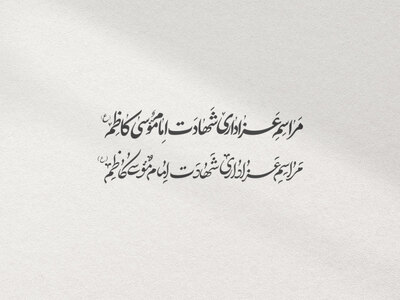 مَراسِمِ عَزاداری شَهادَت اِمام مُوسیٰ کاظِم (ع)
مَراسِمِ عَزاداری شَهادَت اِمام مُوسیٰ کاظِم (ع)